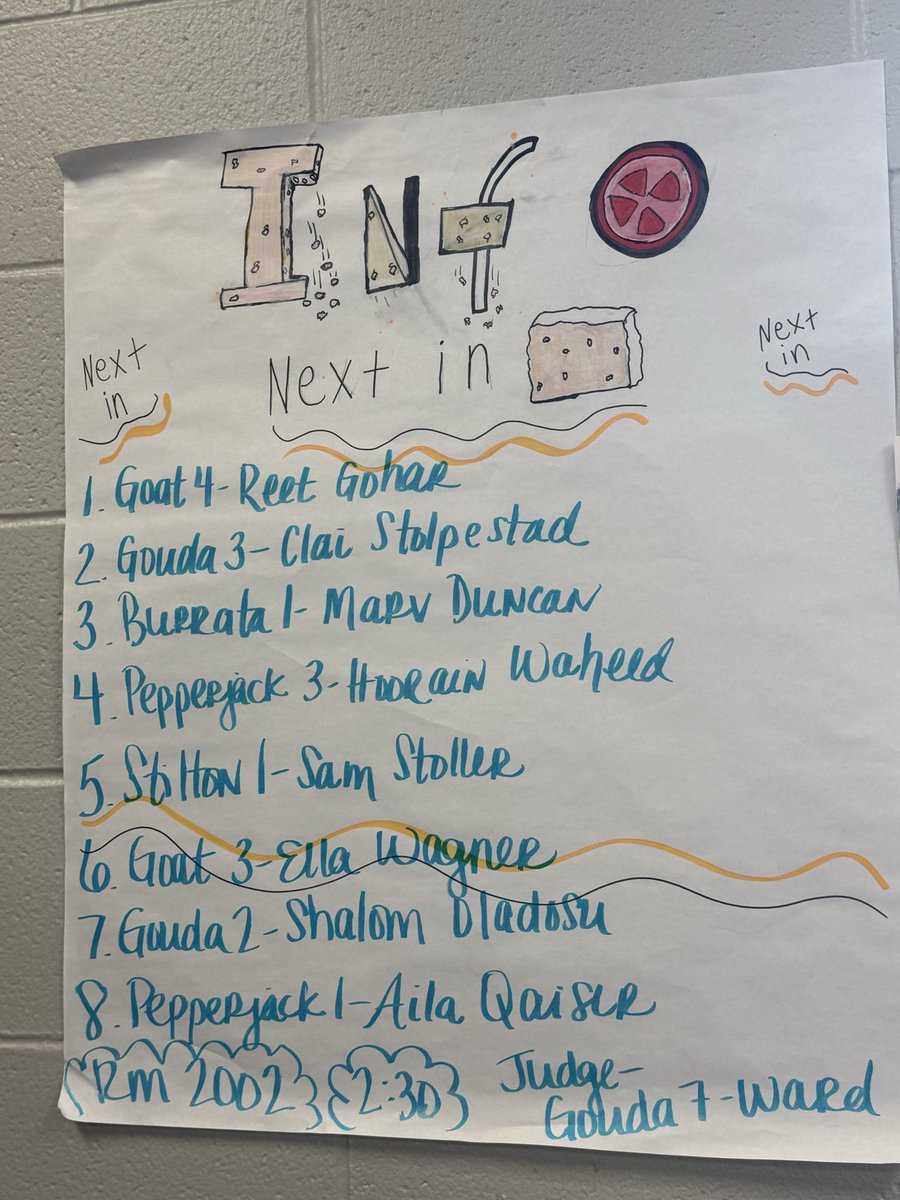 INfo
Next in
Next in
Next in
1. Goat 4 - Reet Gohar
2. Gouda 3 - Clai Stolpestad
3. Burrata 1 - Marv Duncan
4. Pepperjack 3 - Hoorain Waheed
5. Stilton 1 - Sam Stoller
6. Goat 3 - Ella Wagner
7. Gouda 2 - Shalom Oladosu
8. Pepperjack 1 - Aila Qaiser
Rm 2002 2:30 Judge-
Gouda 7 - Ward